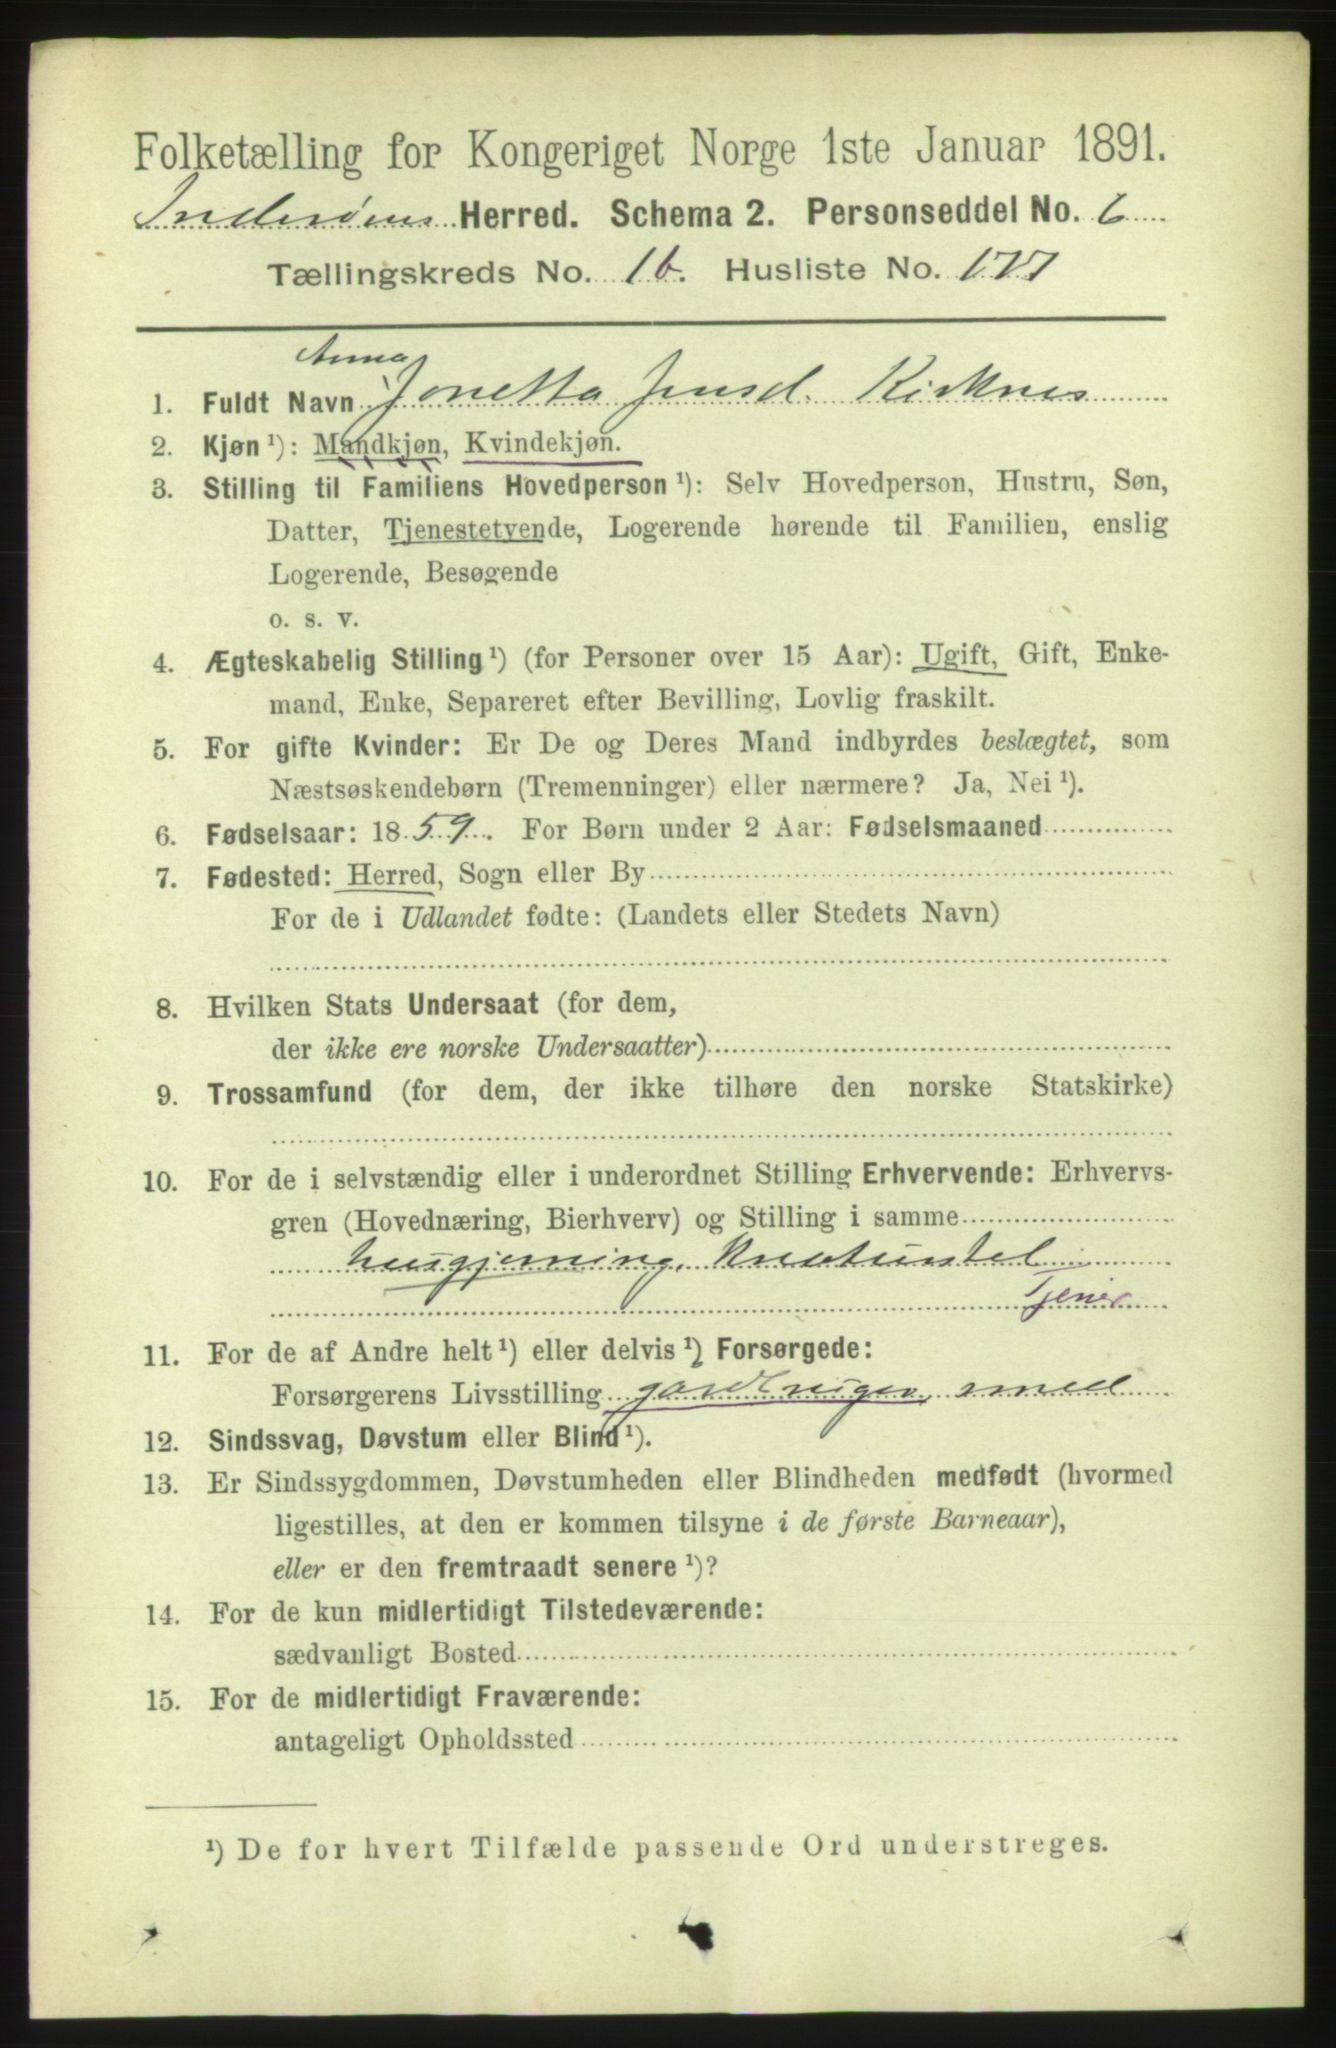 Folketælling for Kongeriget Norge 1ste Januar 1891.
Inderøens Herred. Schema 2. Personseddel No. 6
Tællingskreds No. 1b. Husliste No. 177
Anna
1. Fuldt Navn Jonetta Jensd. Kirknes
2. Kjøn ¹): Mandkjøn, Kvindekjøn.
3. Stilling til Familiens Hovedperson ¹): Selv Hovedperson, Hustru, Søn,
Datter, Tjenestetyende, Logerende hørende til Familien, enslig
Logerende, Besøgende
o. s. v.
4. Ægteskabelig Stilling ¹) (for Personer over 15 Aar): Ugift, Gift, Enke-
mand, Enke, Separeret efter Bevilling, Lovlig fraskilt.
5. For gifte Kvinder: Er De og Deres Mand indbyrdes beslægtet, som
Næstsøskendebørn (Tremenninger) eller nærmere? Ja, Nei ¹).
6. Fødselsaar: 1859. For Børn under 2 Aar: Fødselsmaaned
7. Fødested: Herred, Sogn eller By
For de i Udlandet fødte: (Landets eller Stedets Navn)
8. Hvilken Stats Undersaat (for dem,
der ikke ere norske Undersaatter)
9. Trossamfund (for dem, der ikke tilhøre den norske Statskirke)
10. For de i selvstændig eller i underordnet Stilling Erhvervende: Erhvervs-
gren (Hovednæring, Bierhverv) og Stilling i samme
husgjerning, Kreaturstel
Tjener
11. For de af Andre helt ¹) eller delvis ¹) Forsørgede:
Forsørgerens Livsstilling gardbruger, smed
12. Sindssvag, Døvstum eller Blind ¹).
13. Er Sindssygdommen, Døvstumheden eller Blindheden medfødt (hvormed
ligestilles, at den er kommen tilsyne i de første Barneaar),
eller er den fremtraadt senere ¹)?
14. For de kun midlertidigt Tilstedeværende:
sædvanligt Bosted
15. For de midlertidigt Fraværende:
antageligt Opholdssted
¹) De for hvert Tilfælde passende Ord understreges.